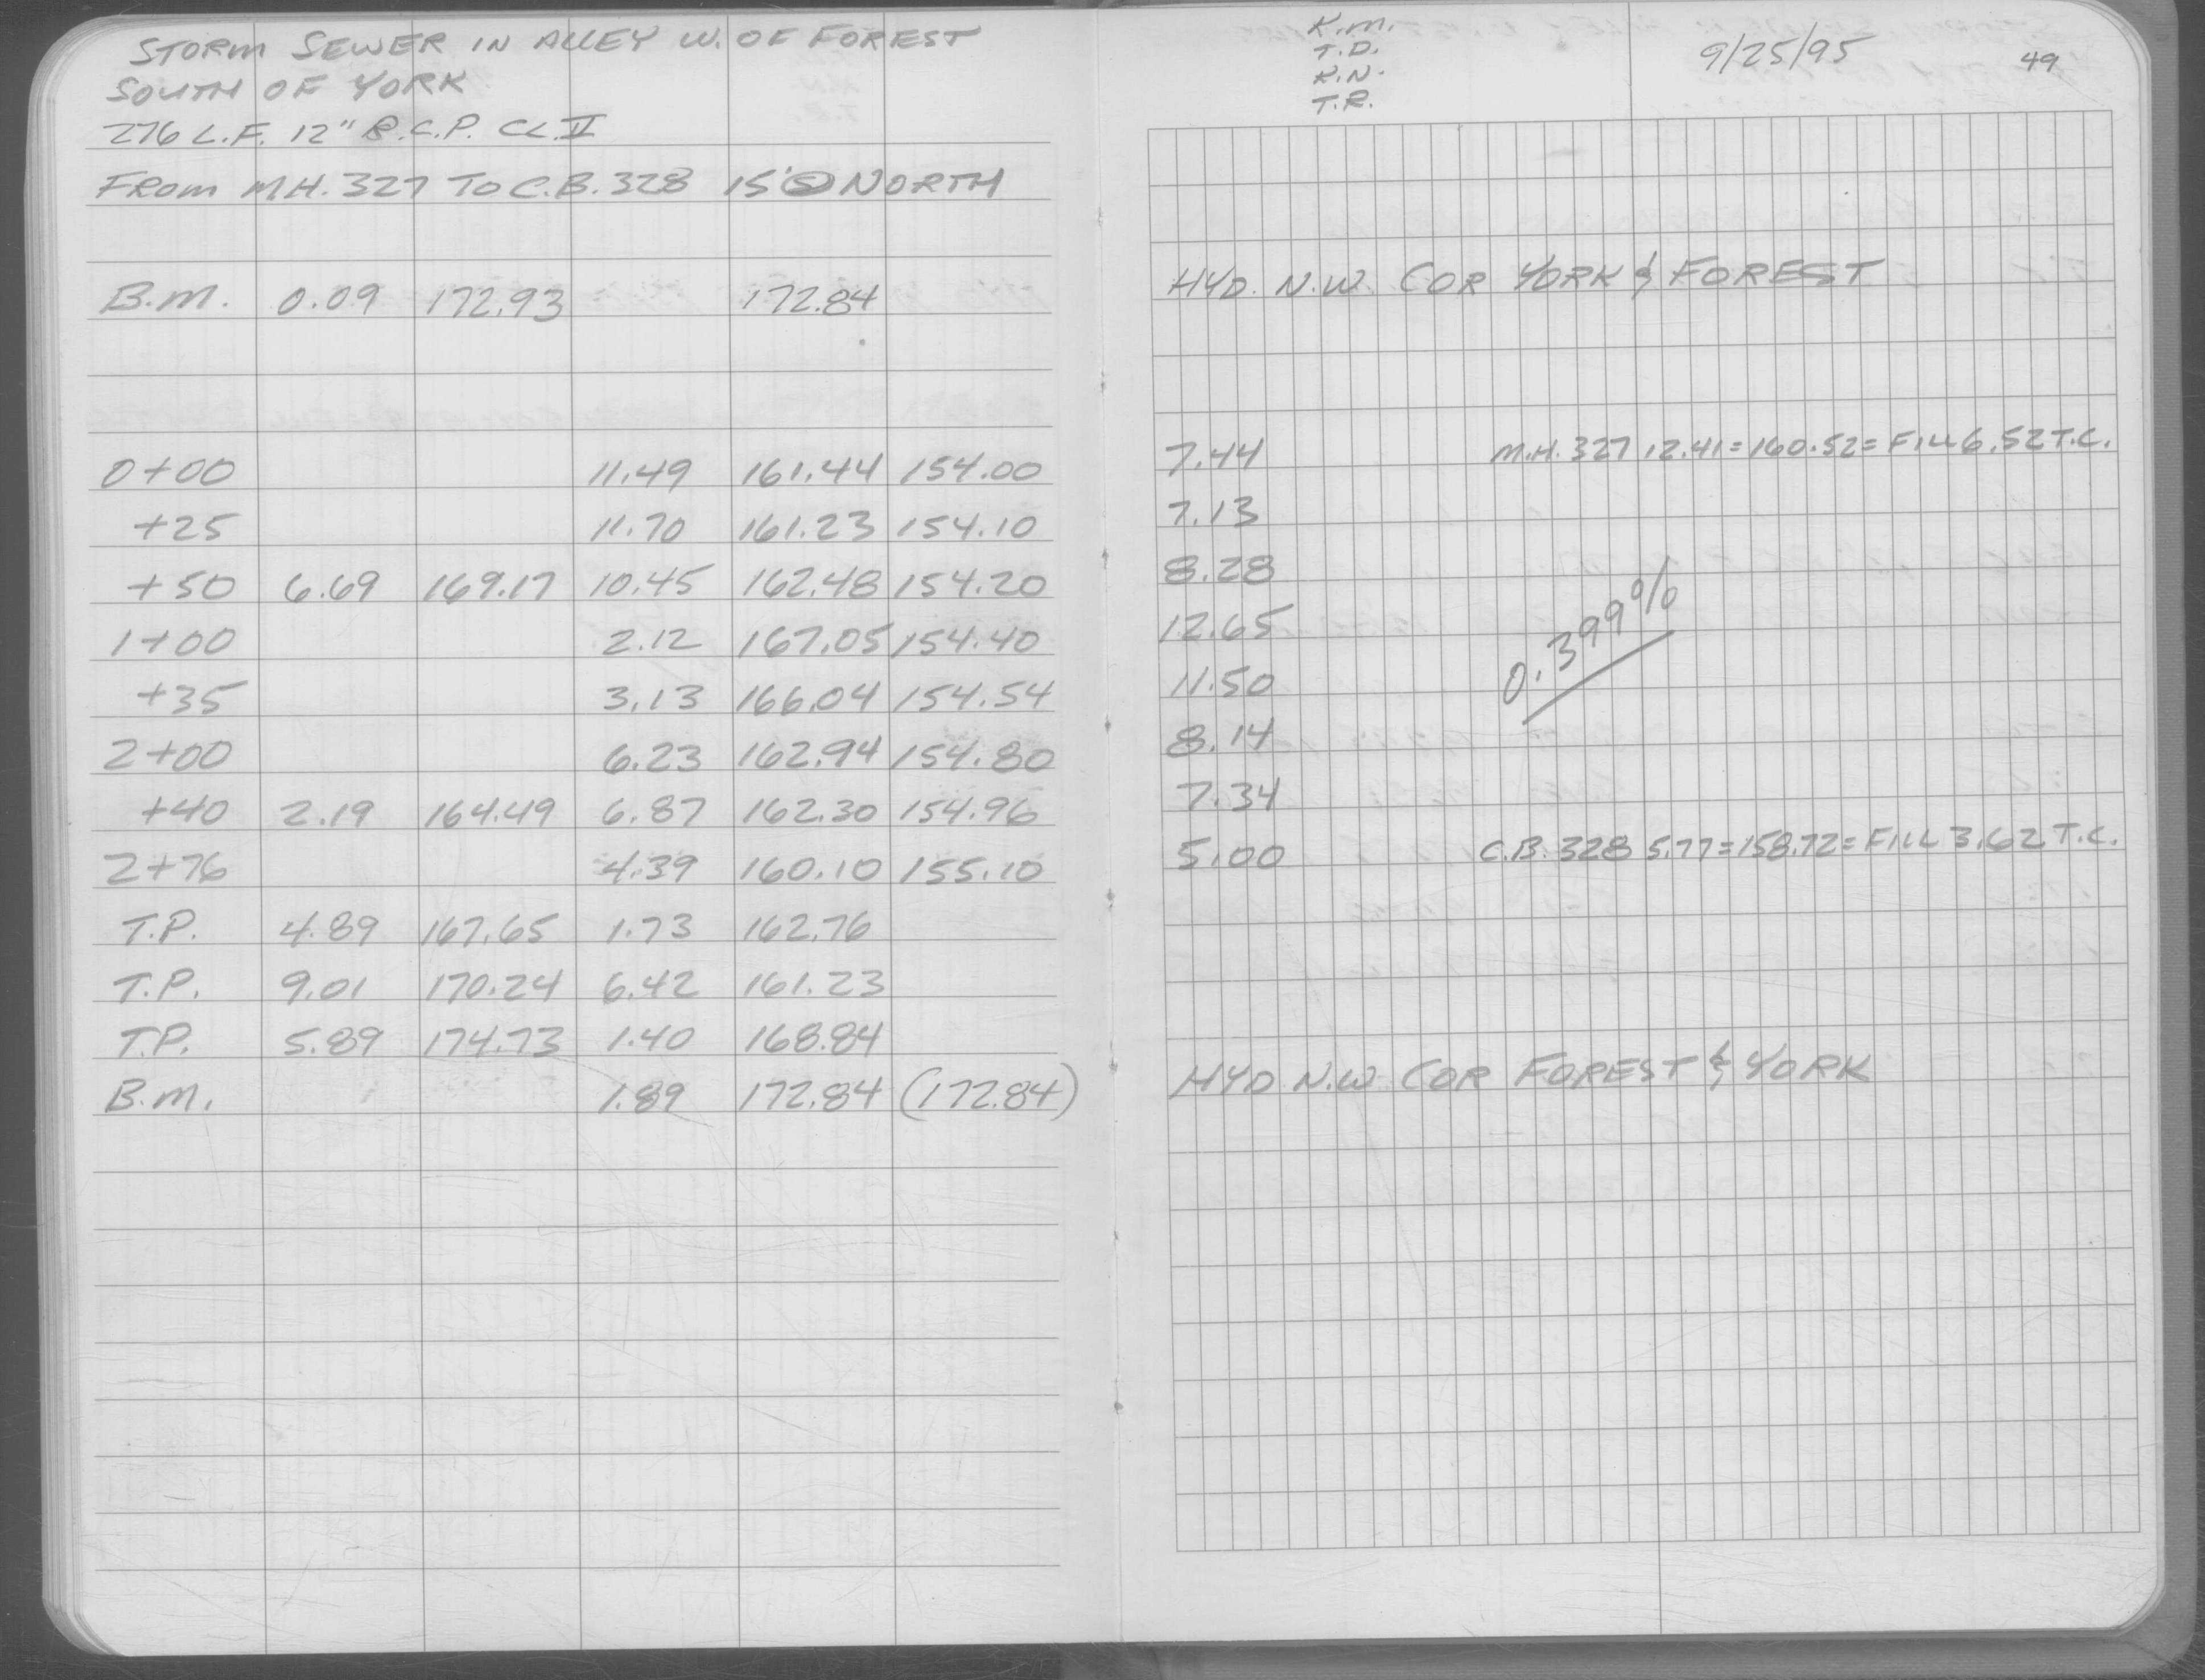 STORM SEWER IN ALLEY W. OF FOREST
SOUTH OF YORK
276 L.F. 12" R.C.P. CL. II
FROM M.H. 327 TO C.B. 328 15' NORTH
B.M. 0.09 172.93 172.84
0+00 11.49 161.44 154.00
+25 11.70 161.23 154.10
+50 6.69 169.17 10.45 162.48 154.20
1+00 2.12 167.05 154.40
+35 3.13 166.04 154.54
2+00 6.23 162.94 154.80
+40 2.19 164.49 6.87 162.30 154.96
2+76 4.39 160.10 155.10
T.P. 4.89 167.65 1.73 162.76
T.P. 9.01 170.24 6.42 161.23
T.P. 5.89 174.73 1.40 168.84
B.M. 1.89 172.84 (172.84)
K.M.
T.D.
K.N.
T.R.
9/25/95 49
HYD. N.W. COR YORK & FOREST
7.44 M.H. 327 12.41=160.52=FILL 6.52 T.C.
7.13
8.28
12.65
11.50
0.399%
8.14
7.34
5.00 C.B. 328 5.77=158.72=FILL 3.62 T.C.
HYD N.W. COR FOREST & YORK